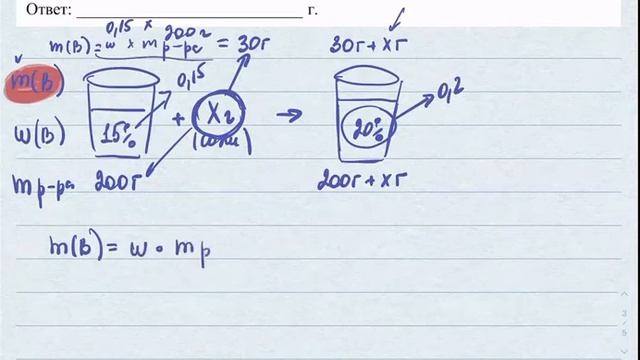 Ответ: ______________________________ г.
0,15 x 200г
m(B) = w x m р-ра = 30г
30г + xг
m(B)
0,15
0,2
w(B)
15%
+
Xг
(соли)
→
20%
m р-ра
200г
200г + xг
m(B) = w • m р
3
5